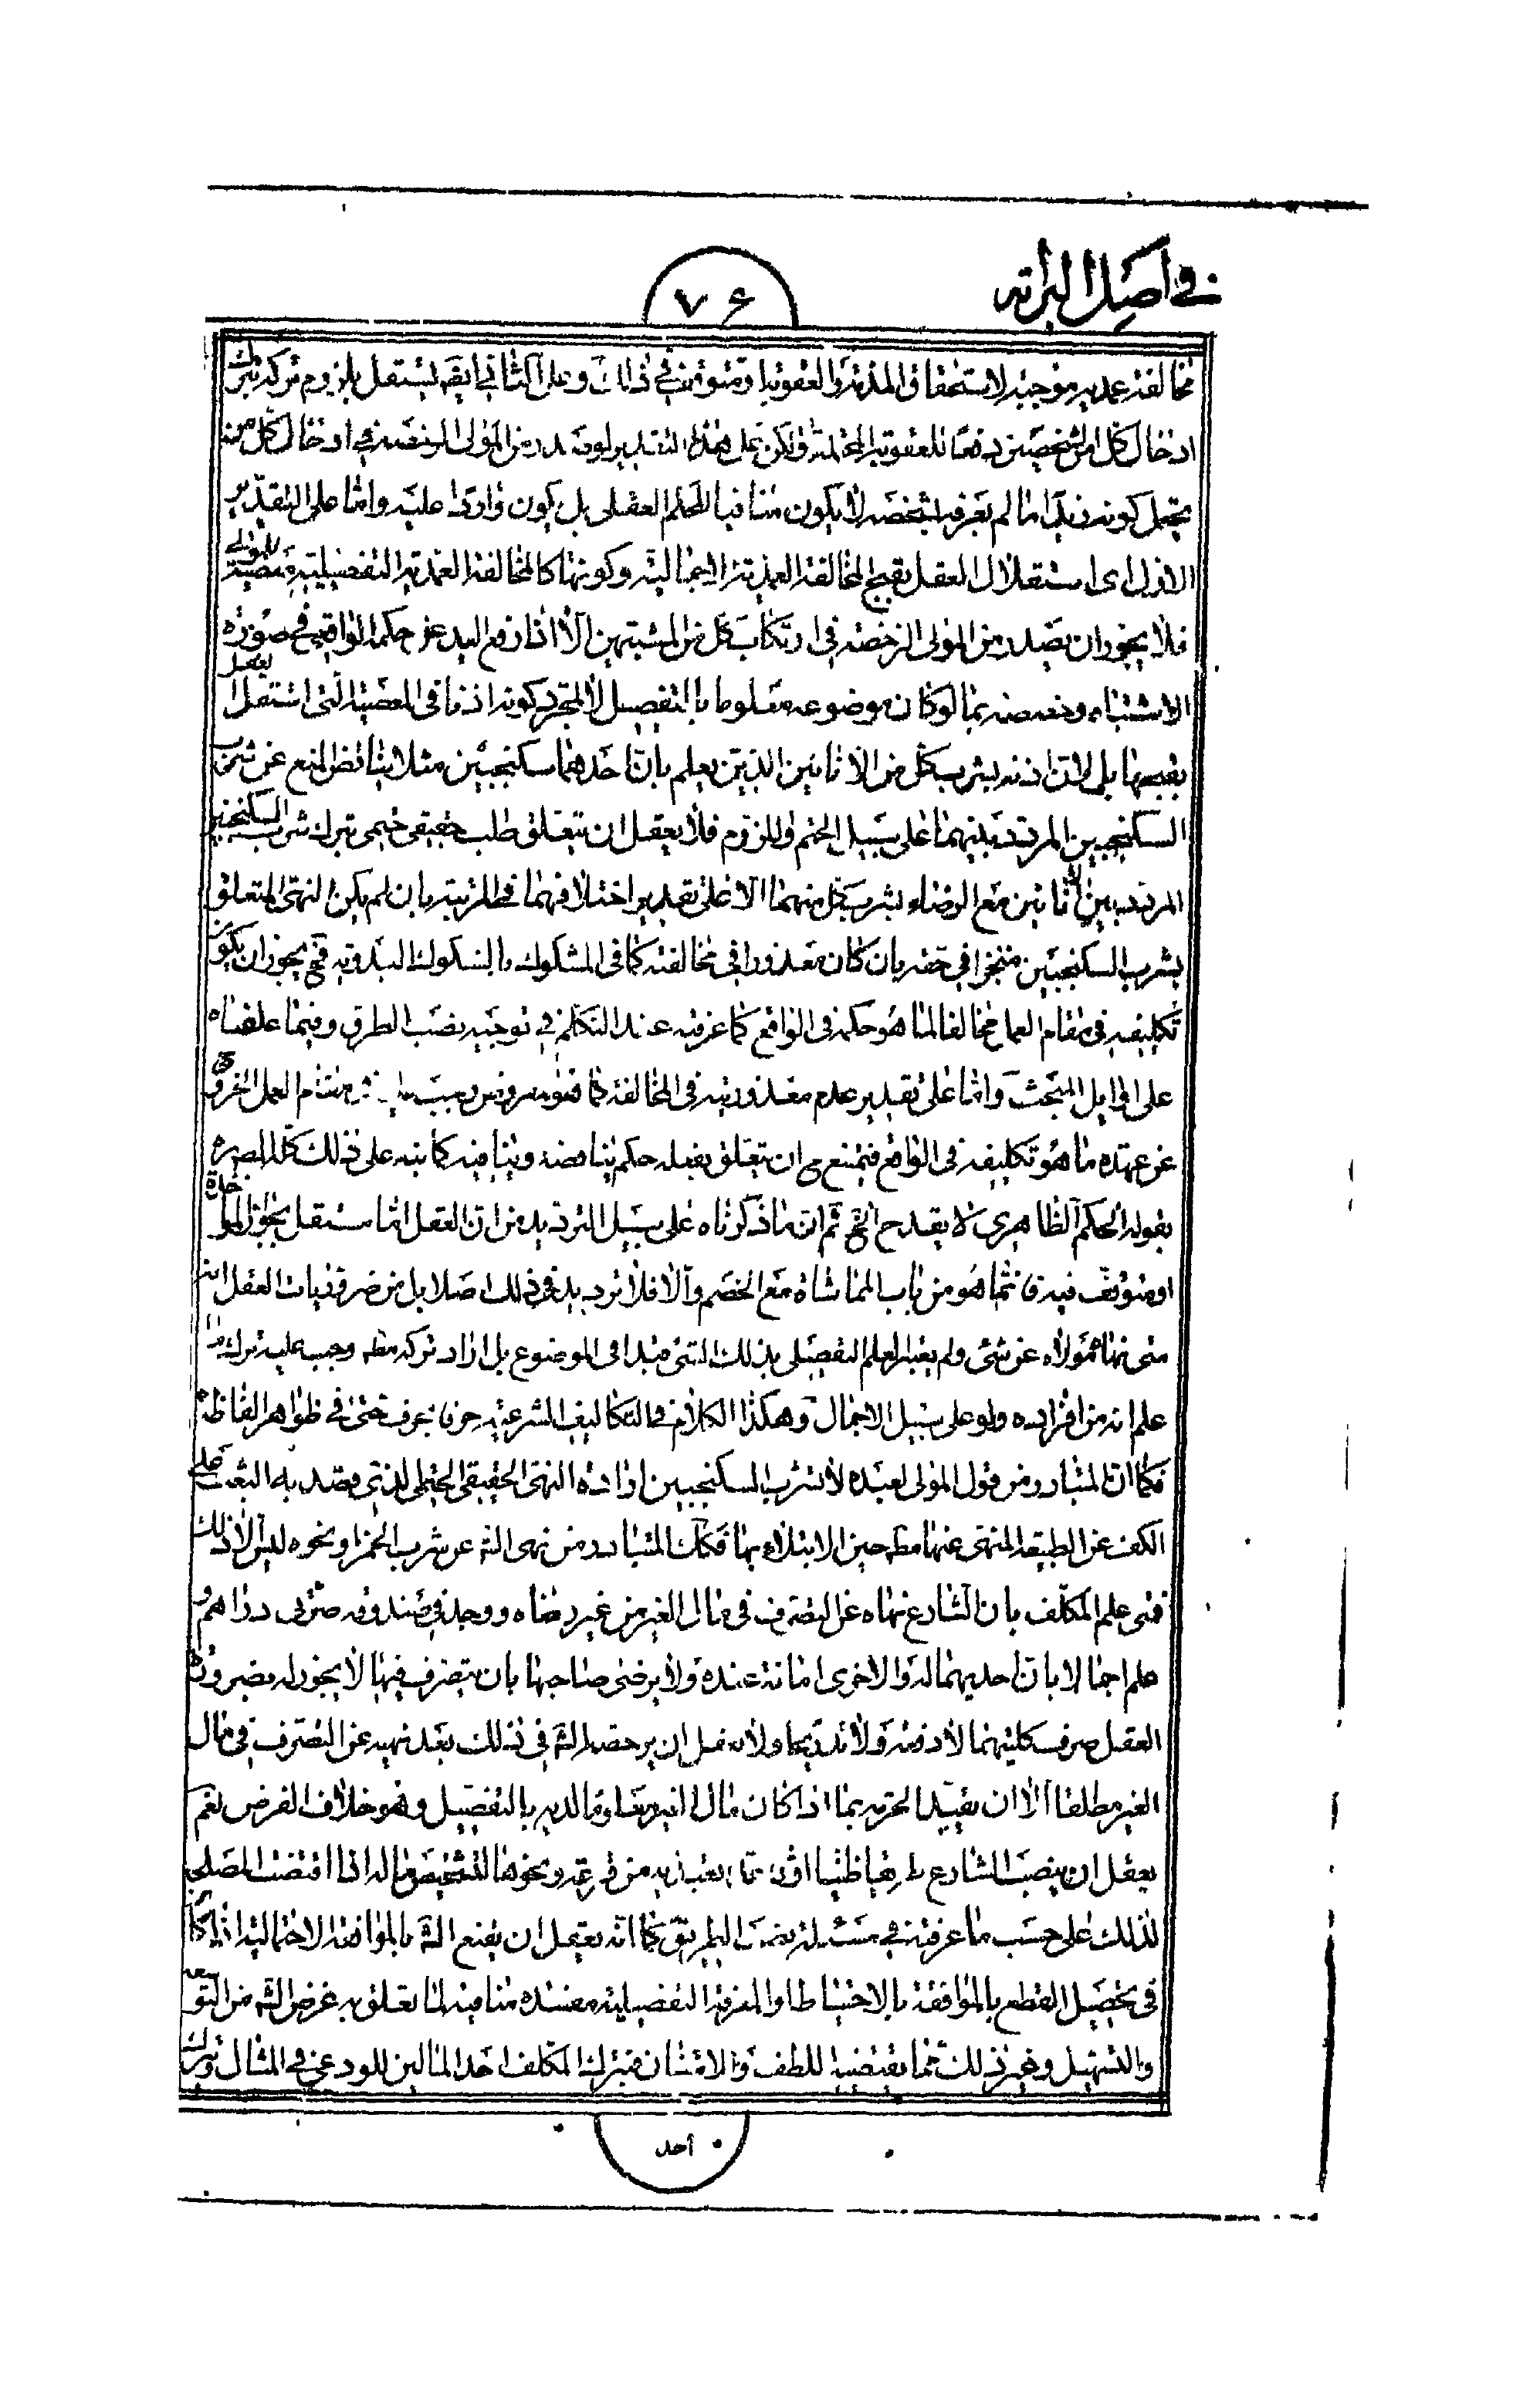 في أصل البرائة
٧۶
مخالفته عمدية موجبة لاستحقاق المذمة والعقوبة او متوقف في ذلك وعلى الثاني ايضا يستقل بلزوم تركه بترك
ادخال كل من الشخصين دفعا للعقوبة المحتملة ولكن على هذا التقدير لو صدر من المولى الرخصة في ادخال كل من
يحتمل كونه زيدا ما لم يعرفه بشخصه لا يكون منافيا للحكم العقلى بل يكون واردا عليه واما على التقدير
الاول اى استقلال العقل بقبح المخالفة العمدية الاجمالية وكونها كالمخالفة العمدية التفصيلية معصية للمولى
فلا يجوز ان يصدر من المولى الرخصة في ارتكاب كل من المشتبهين الا اذا رفع اليد عن حكمه الواقعي في صورة
الاشتباه وخصصه بما لو كان موضوعه معلوما بالتفصيل لا لمجرد كونه اذنا في المعصية التى استقل العقل
بقبحها بل لان اذنه بشرب كل من الانائين الذين يعلم بان احدهما سكنجبين مثلا يناقض المنع عن شرب
السكنجبين المردد بينهما على سبيل الحتم واللزوم فلا يعقل ان يتعلق طلب حقيقى حتمى بترك شرب السكنجبين
المردد بين الانائين مع الرضاء بشرب كل منهما الا على تقدير اختلافهما في المرتبة بان لم يكن النهى المتعلق
بشرب السكنجبين منجزا في حقه بان كان معذورا في مخالفته كما في المشكوك بالشكوك البدوية فح يجوز ان يكون
تكليفه في مقام العمل مخالفا لما هو حكمه في الواقع كما عرفته عند التكلم في توجيه نصب الطرق وفيما علقناه
على اوايل المبحث واما على تقدير عدم معذوريته في المخالفة كما هو المفروض فيجب عليه في مقام العمل الخروج
عن عهدة ما هو تكليفه في الواقع فيمتنع ح ان يتعلق بفعله حكم يناقضه وينافيه كما نبه على ذلك كله المصره
بقوله الحكم الظاهرى لا يقدح الخ ثم ان ما ذكرناه على سبيل الترديد من ان العقل اما مستقل بجواز المؤاخذة
او متوقف فيه فانما هو من باب المماشاة مع الخصم والا فلا ترديد في ذلك اصلا بل من ضروريات العقل انه
متى نهاه مولاه عن شئ ولم يعتبر العلم التفصيلى بذلك الشئ قيدا في الموضوع بل اراد تركه مطه وجب عليه ترك ما
علم انه من افراده ولو على سبيل الاجمال وهكذا الكلام في التكاليف الشرعية حرفا بحرف حتى في ظواهر الفاظه
فكما ان المتبادر من قول المولى لعبده لا تشرب السكنجبين ارادة النهى الحقيقى الحتمى الذى قصد به البعث على
الكف عن الطبيعة المنهى عنها مطه حين الابتلاء بها فكك المتبادر من نهى الشه عن شرب الخمر ونحوه ليس الا ذلك
فمتى علم المكلف بان الشارع نهاه عن التصرف في مال الغير من غير رضاه ووجد في صندوقه صرتى دراهم و
علم اجمالا بان احديهما له والاخرى امانة عنده ولا يرضى صاحبها بان يتصرف فيها لا يجوز له بضرورة
العقل صرف كلتيهما لا دفعة ولا تدريجا ولا يعقل ان يرخصه الشه في ذلك بعد نهيه عن التصرف في مال
الغير مطلقا الا ان يقيد الحرمة بما اذا كان مال الغير معلوما لديه بالتفصيل وهو خلاف الفرض نعم
يعقل ان ينصب الشارع طريقا ظنيا او تعبديا من قرعة ونحوها لتشخيص ماله اذا اقتضت المصلحة
لذلك على حسب ما عرفته في مسئلة نصب الطريق كما انه يعقل ان يقنع الشه بالموافقة الاحتمالية اذا كان
في تحصيل القطع بالموافقة بالاحتياط او المعرفة التفصيلية مفسدة منافية لما تعلق به غرض الشه من التوسعة
والتسهيل وغير ذلك مما يقتضيه اللطف والامتنان فبترك المكلف احد المالين للودعى في المثال وبترك
احد